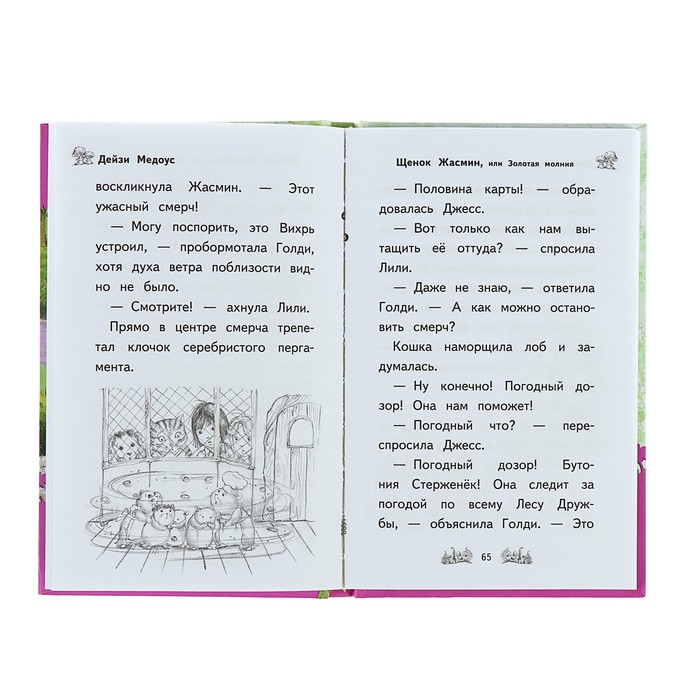 Дейзи Медоус
воскликнула Жасмин. — Этот
ужасный смерч!
— Могу поспорить, это Вихрь
устроил, — пробормотала Голди,
хотя духа ветра поблизости вид-
но не было.
— Смотрите! — ахнула Лили.
Прямо в центре смерча трепе-
тал клочок серебристого перга-
мента.
Щенок Жасмин, или Золотая молния
— Половина карты! — обра-
довалась Джесс.
— Вот только как нам вы-
тащить её оттуда? — спросила
Лили.
— Даже не знаю, — ответила
Голди. — А как можно остано-
вить смерч?
Кошка наморщила лоб и за-
думалась.
— Ну конечно! Погодный до-
зор! Она нам поможет!
— Погодный что? — пере-
спросила Джесс.
— Погодный дозор! Буто-
ния Стерженёк! Она следит за
погодой по всему Лесу Друж-
бы, — объяснила Голди. — Это
65